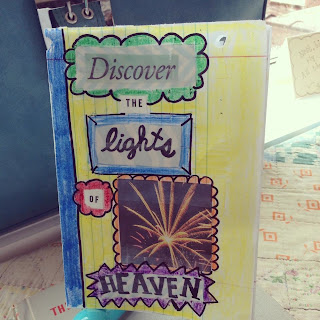 Discover
THE
lights
OF
HEAVEN
TH